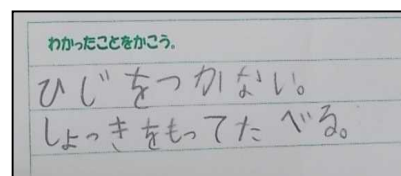 わかったことをかこう。
ひじをつかない。
しょっきをもってたべる。